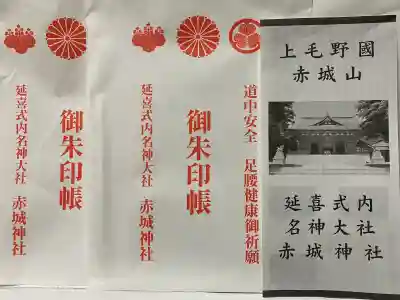 延喜式内名神大社 赤城神社
御朱印帳
延喜式内名神大社 赤城神社
御朱印帳
道中安全 足腰健康御祈願
上毛野國
赤城山
延喜式内
名神大社
赤城神社